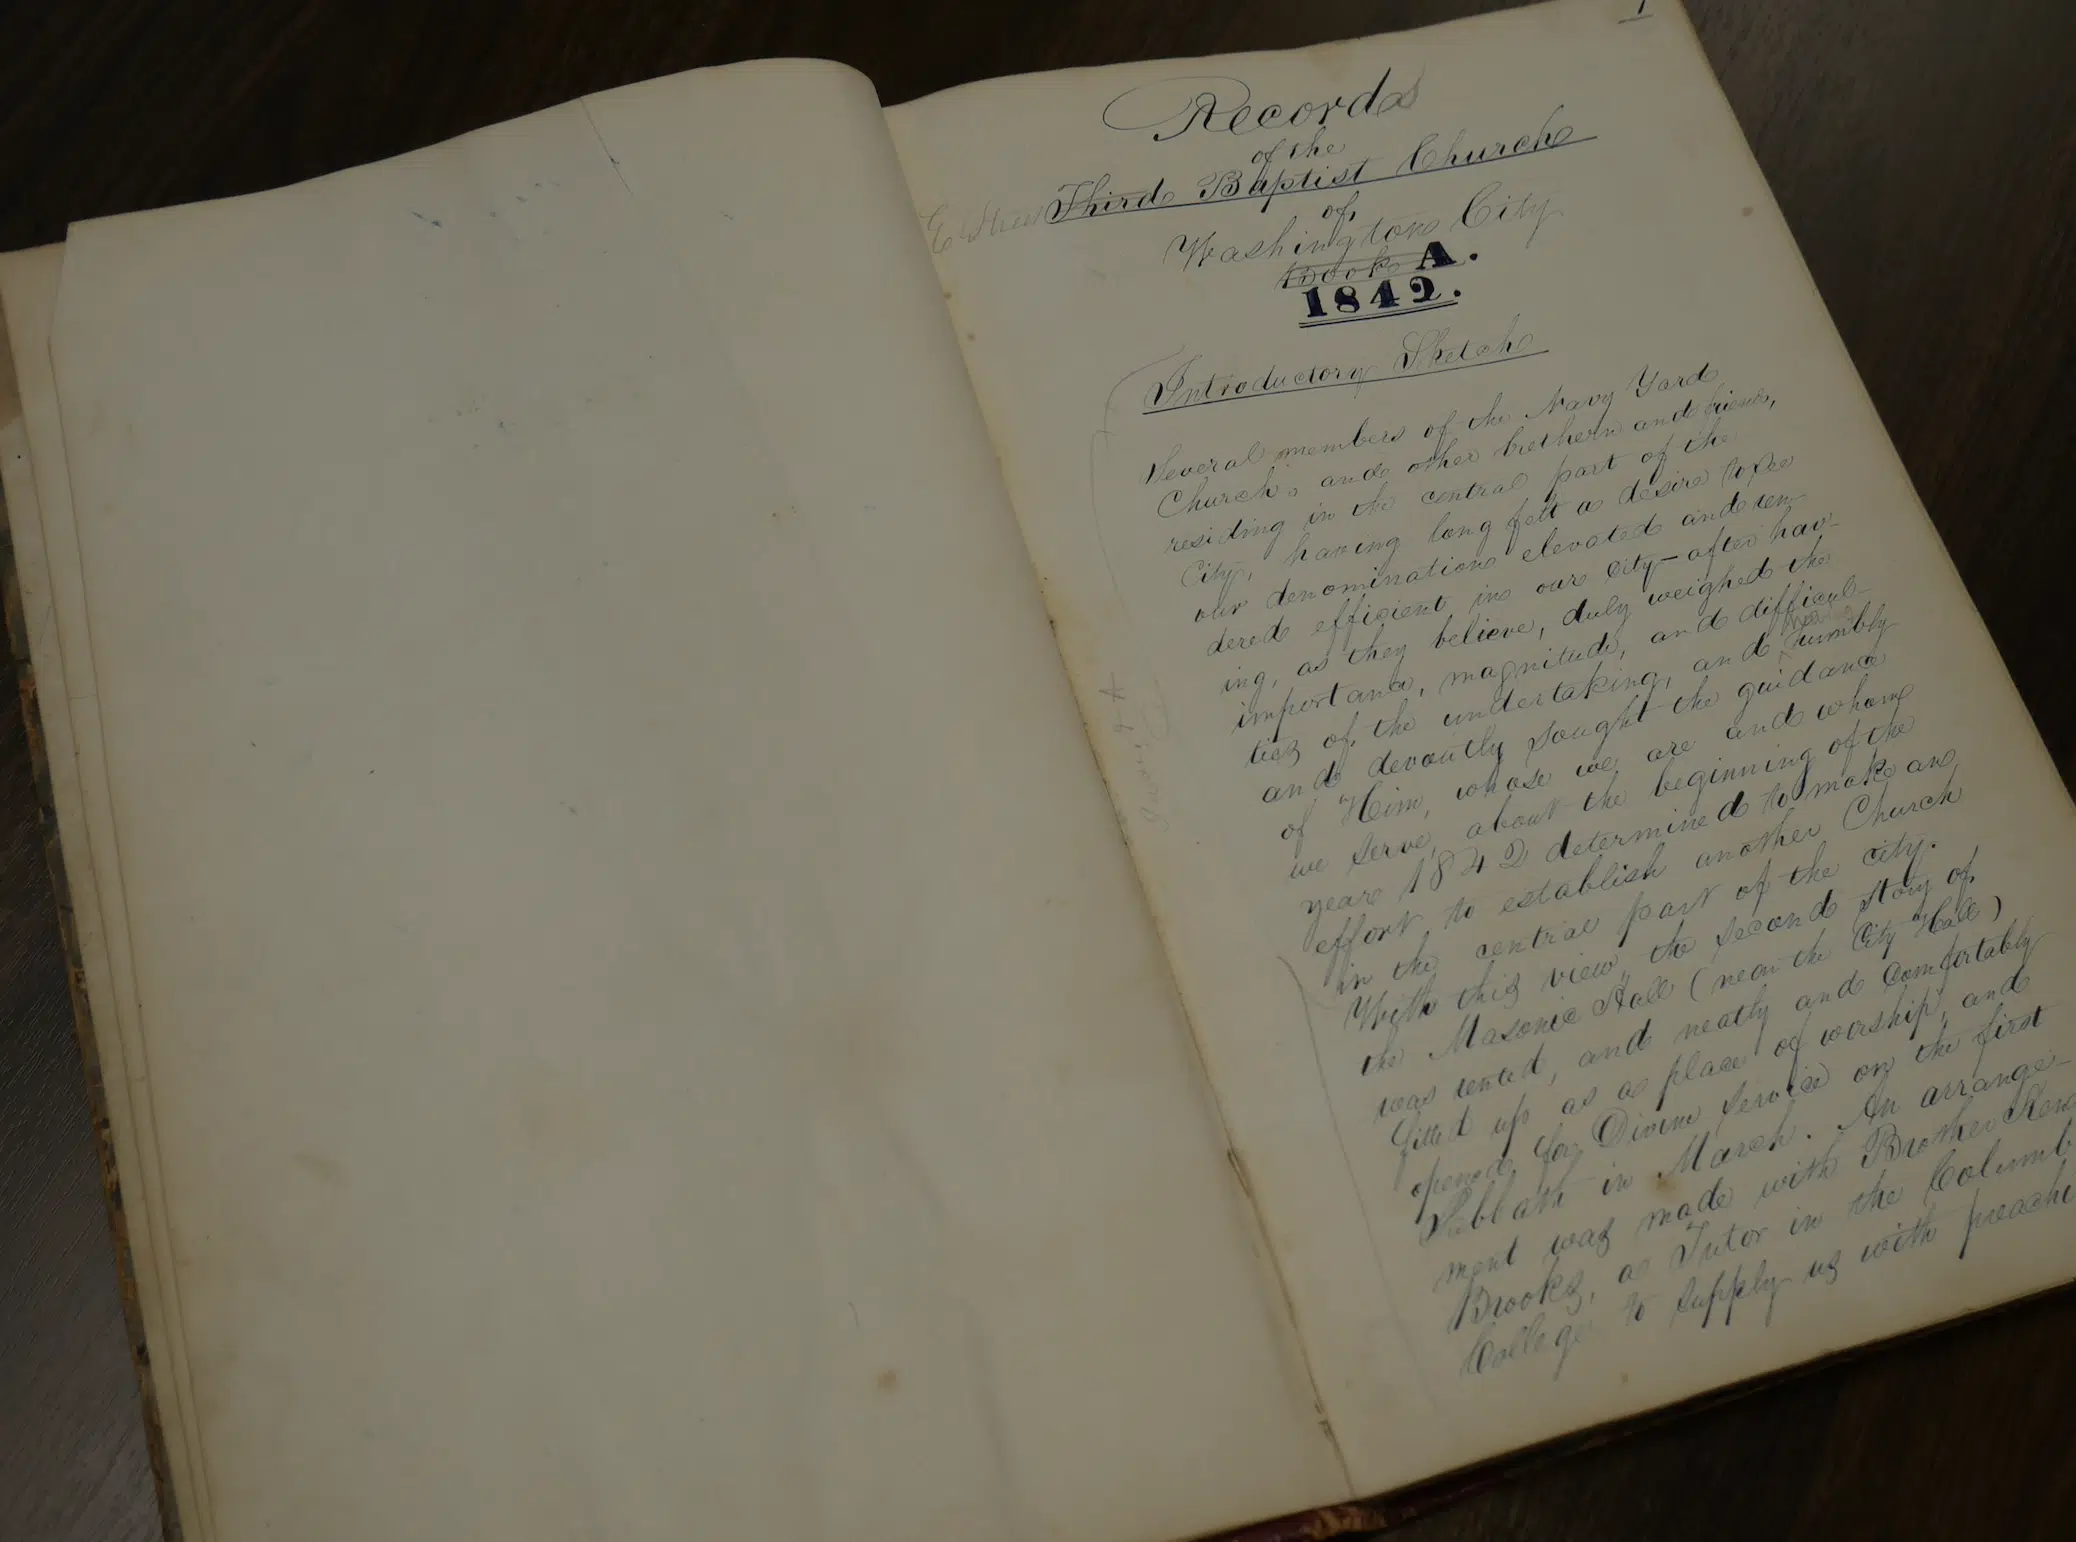 1
Records
of the
Third Baptist Church
of
Washington City
Book A.
1842.
Introductory Sketch
Several members of the Navy Yard
Church, and other brethern and friends,
residing in the central part of the
City, having long felt a desire to see
our denomination elevated and ren-
dered efficient in our city—after hav-
ing, as they believe, duly weighed the
importance, magnitude, and difficul-
ties of the undertaking, and humbly
and devoutly sought the guidance
of Him, whose we are and whom
we serve, about the beginning of the
year 1842 determined to make an
effort to establish another Church
in the central part of the city.
With this view, the second story of
the Masonic Hall (near the City Hall)
was rented, and neatly and comfortably
fitted up as a place of worship, and
opened for Divine service on the first
Sabbath in March. An arrange-
ment was made with Brother
Brooks, a Tutor in the Columb
College to supply us with preachi